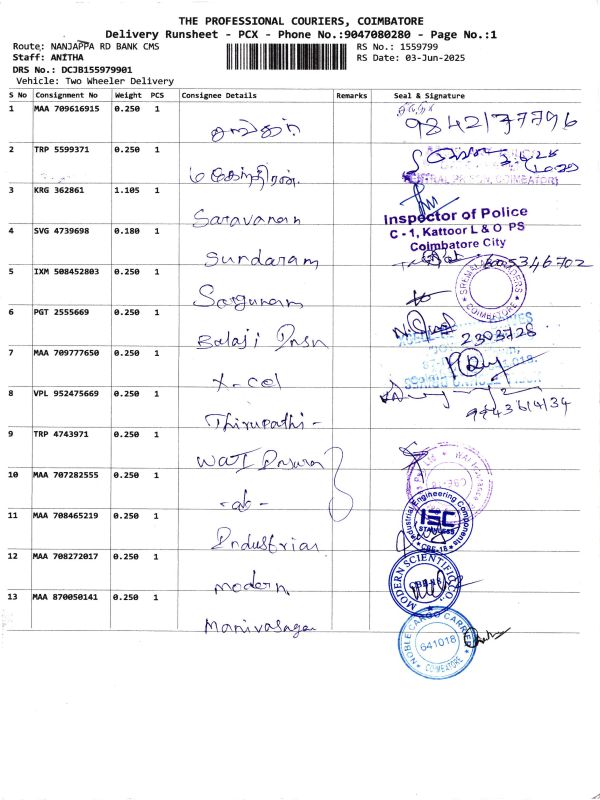 THE PROFESSIONAL COURIERS, COIMBATORE
Delivery Runsheet - PCX - Phone No.:9047080280 - Page No.:1
Route: NANJAPPA RD BANK CMS
RS No.: 1559799
Staff: ANITHA
RS Date: 03-Jun-2025
DRS No.: DCJB155979901
Vehicle: Two Wheeler Delivery
S No Consignment No Weight PCS Consignee Details Remarks Seal & Signature
1 MAA 709616915 0.250 1
9842177796
2 TRP 5599371 0.250 1
3 KRG 362861 1.105 1
Saravanan
Inspector of Police
C - 1, Kattoor L & O PS
Coimbatore City
4 SVG 4739698 0.180 1
Sundaram
5 IXM 508452803 0.250 1
COIMBATORE
6 PGT 2555669 0.250 1
Balaji
2303728
7 MAA 709777650 0.250 1
X-cel
8 VPL 952475669 0.250 1
Thirupathi -
9 TRP 4743971 0.250 1
10 MAA 707282555 0.250 1
11 MAA 708465219 0.250 1
Industrial
Industrial Engineering Components
IEC
CBE-18
12 MAA 708272017 0.250 1
modern
MODERN SCIENTIFIC CO.,
13 MAA 870050141 0.250 1
Manivasagar
NOBLE CARGO CARRIER
641018
COIMBATORE